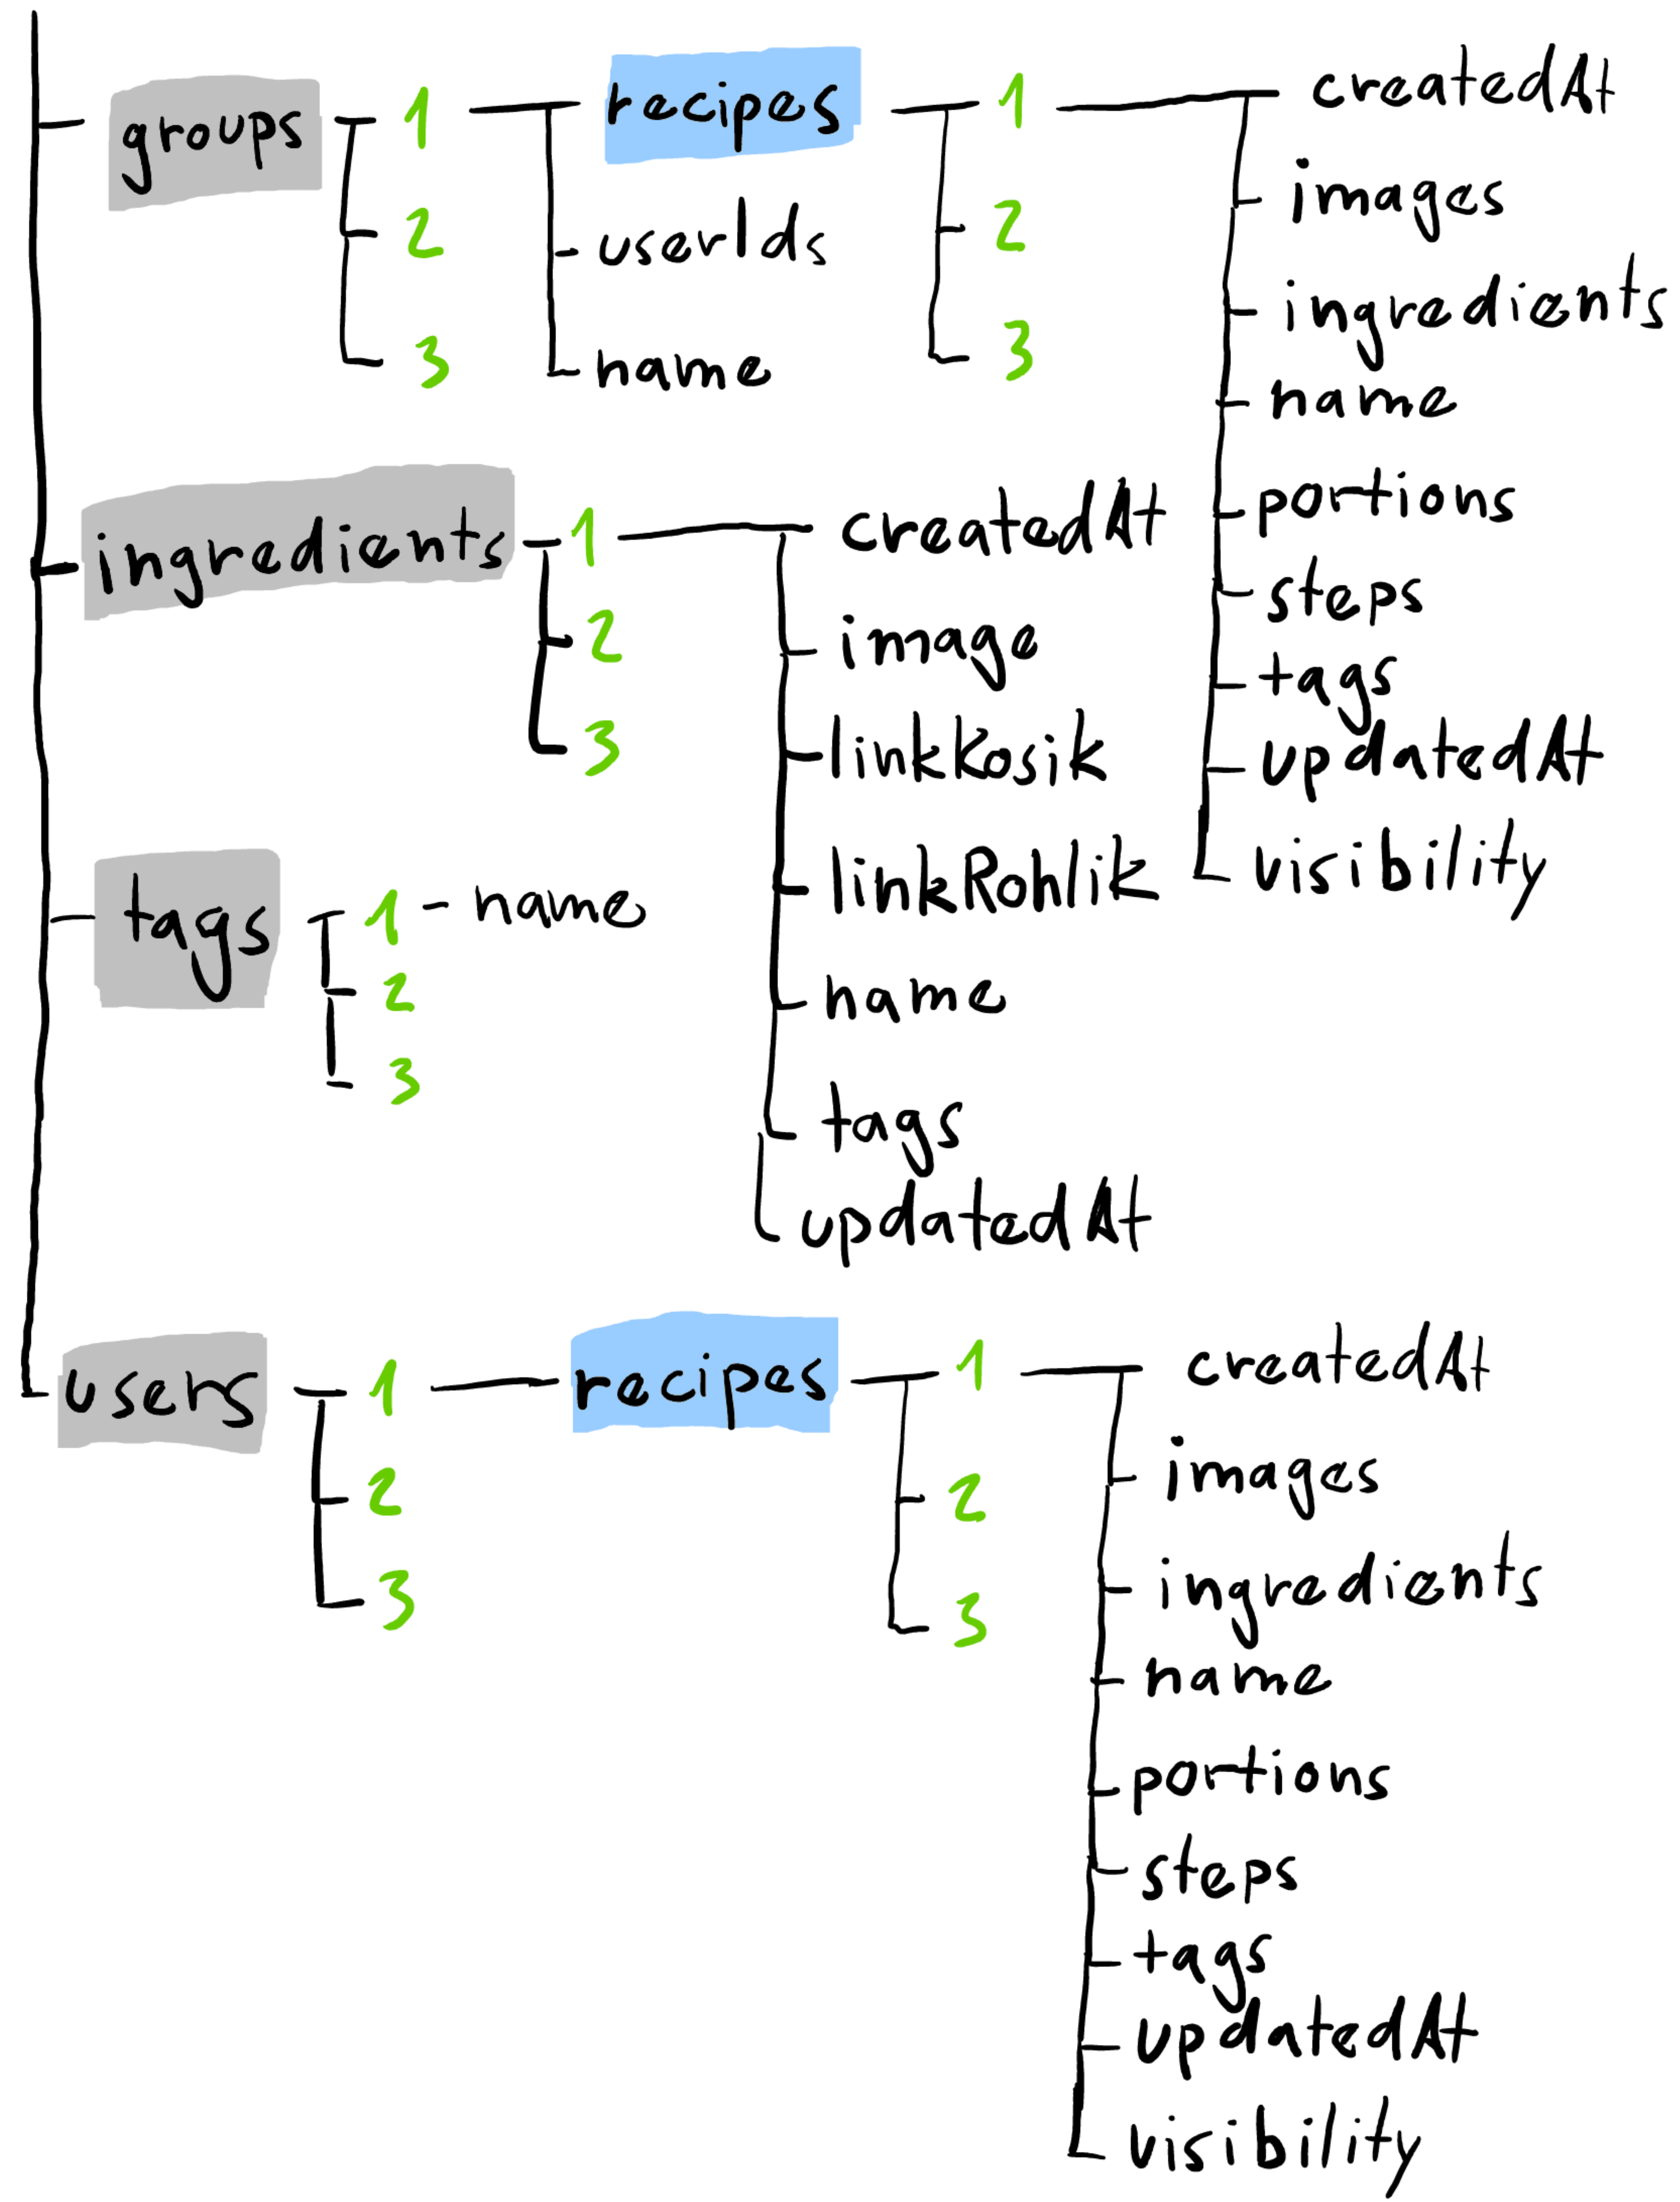 groups
1
2
3
recipes
userIds
name
1
2
3
createdAt
images
ingredients
name
portions
steps
tags
updatedAt
visibility
ingredients
1
2
3
createdAt
image
linkKosik
linkRohlik
name
tags
updatedAt
tags
1 - name
2
3
users
1
2
3
recipes
1
2
3
createdAt
images
ingredients
name
portions
steps
tags
updatedAt
visibility